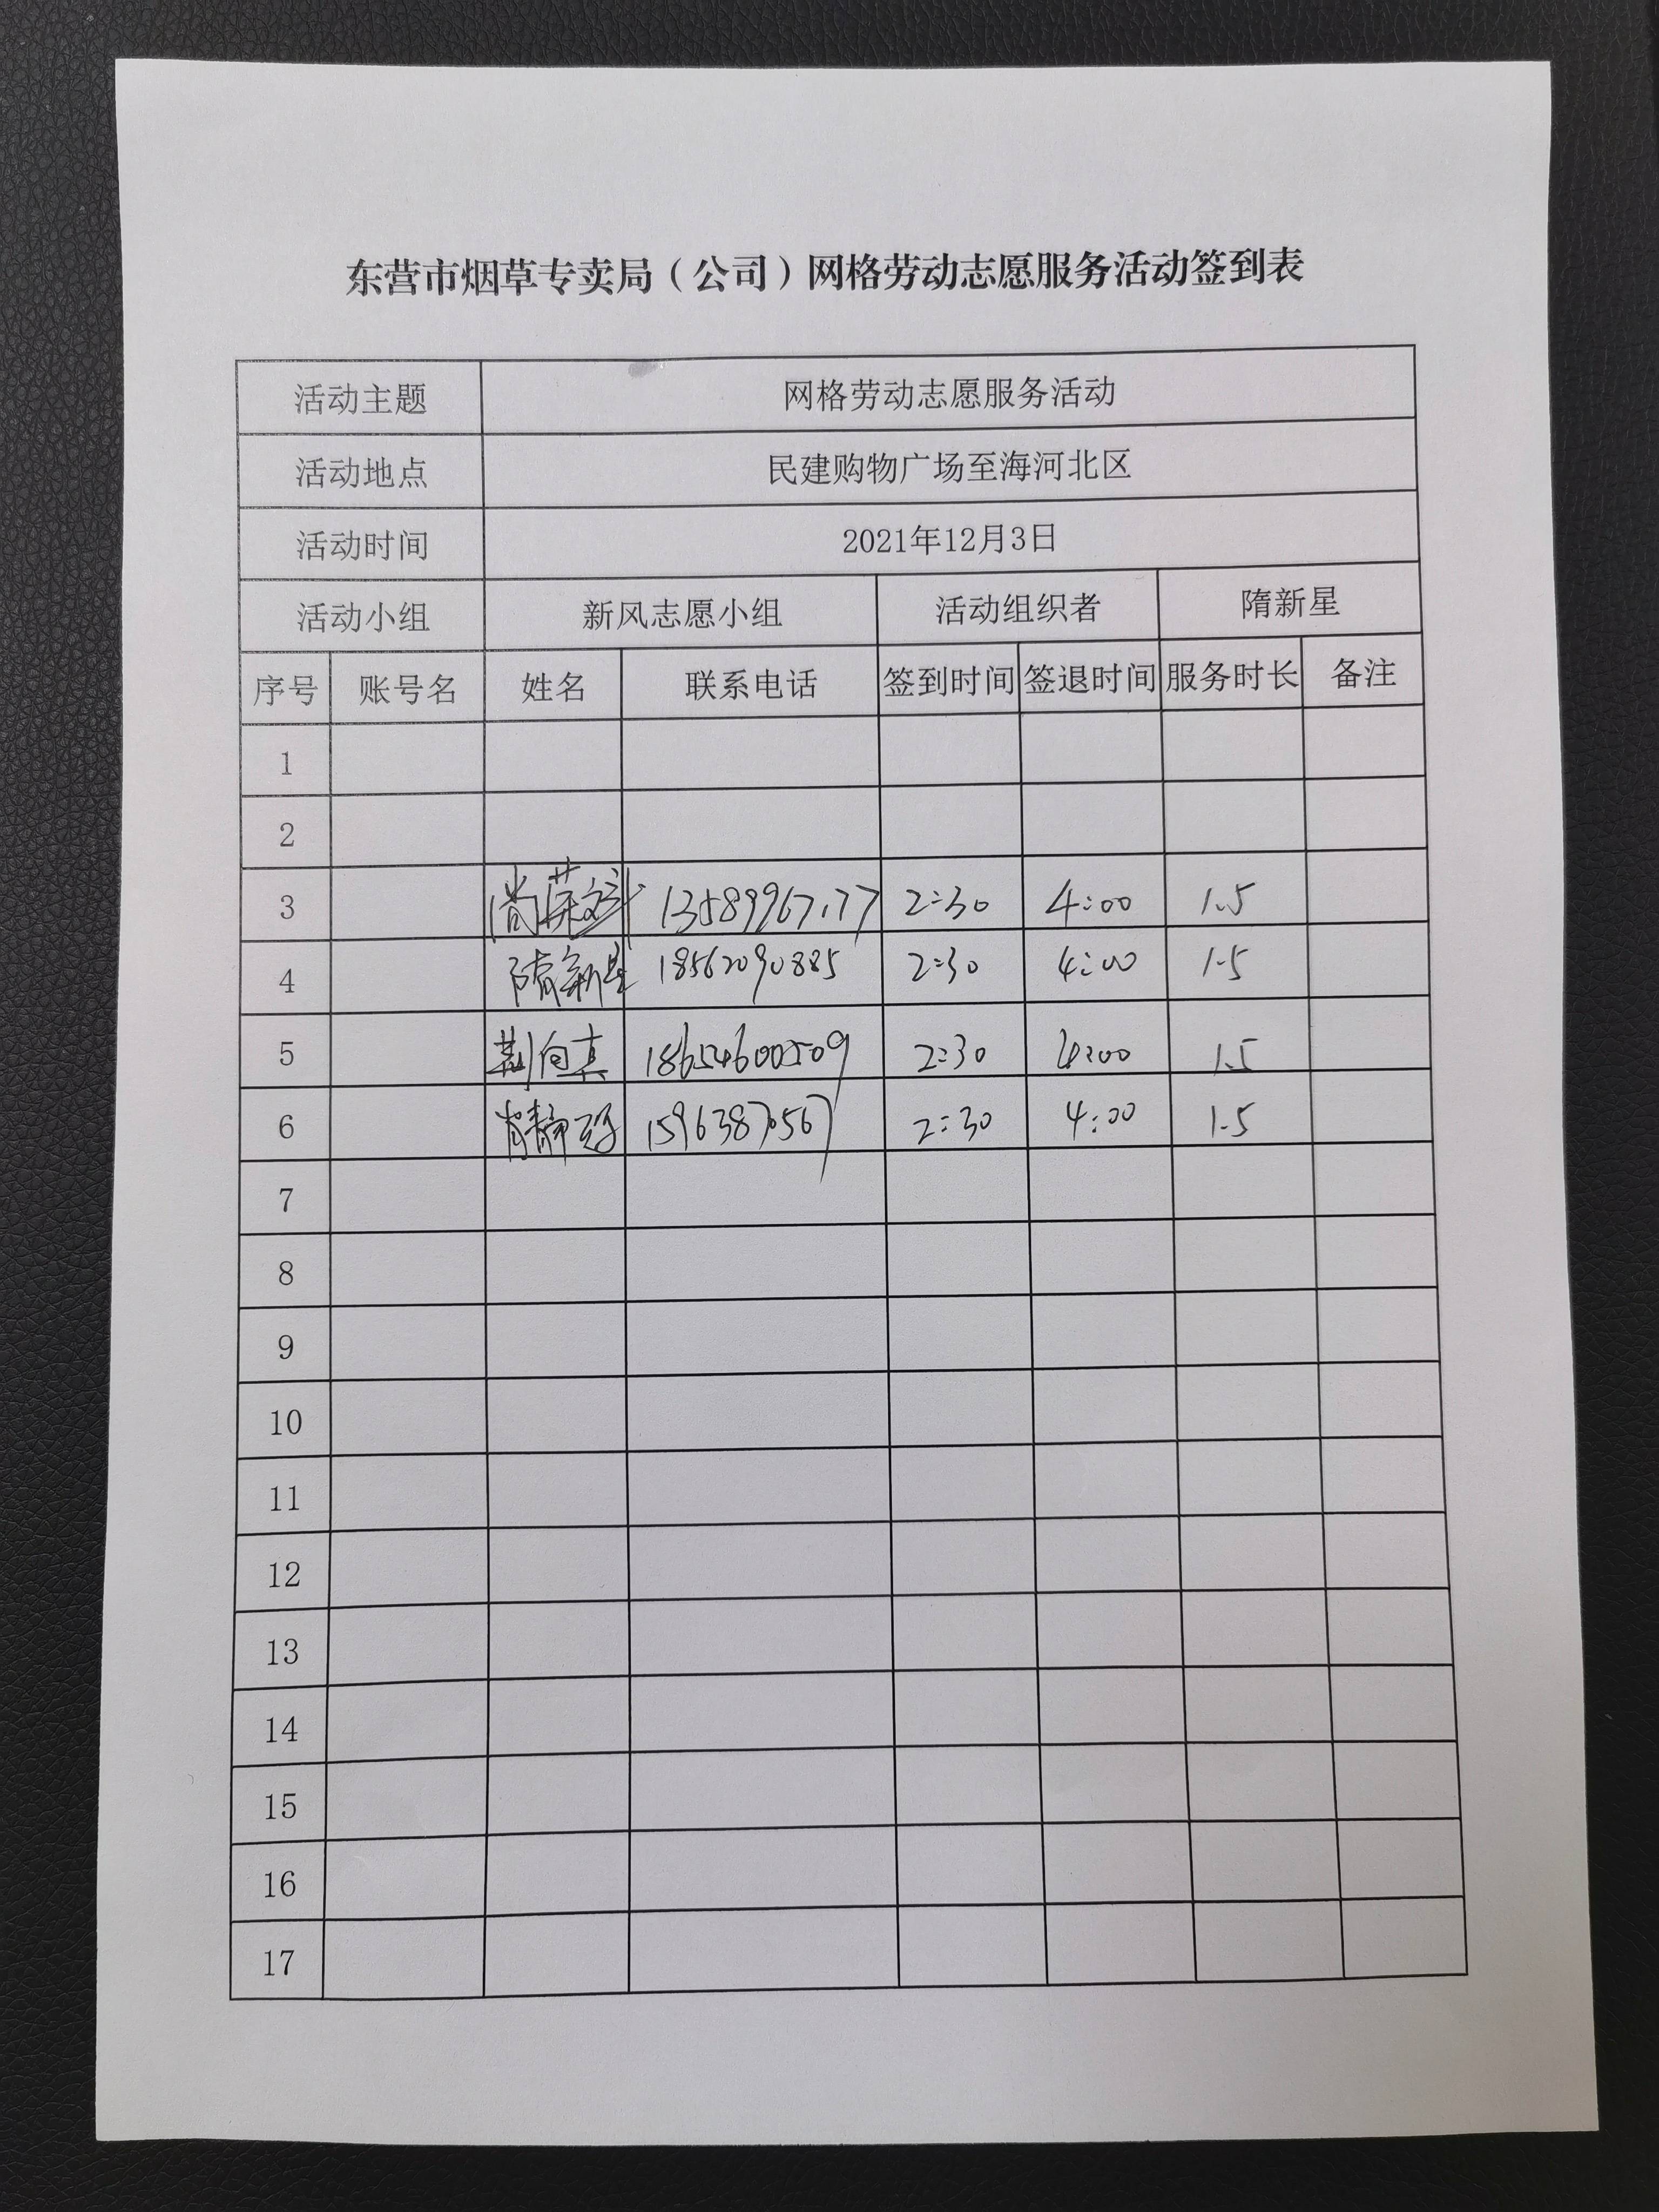 东营市烟草专卖局（公司）网格劳动志愿服务活动签到表
活动主题 网格劳动志愿服务活动
活动地点 民建购物广场至海河北区
活动时间 2021年12月3日
活动小组 新风志愿小组 活动组织者 隋新星
序号 账号名 姓名 联系电话 签到时间 签退时间 服务时长 备注
1
2
3 13589967177 2:30 4:00 1.5
4 隋新星 18562090885 2:30 4:00 1.5
5 荆向真 18654600509 2:30 4:00 1.5
6 2:30 4:00 1.5
7
8
9
10
11
12
13
14
15
16
17